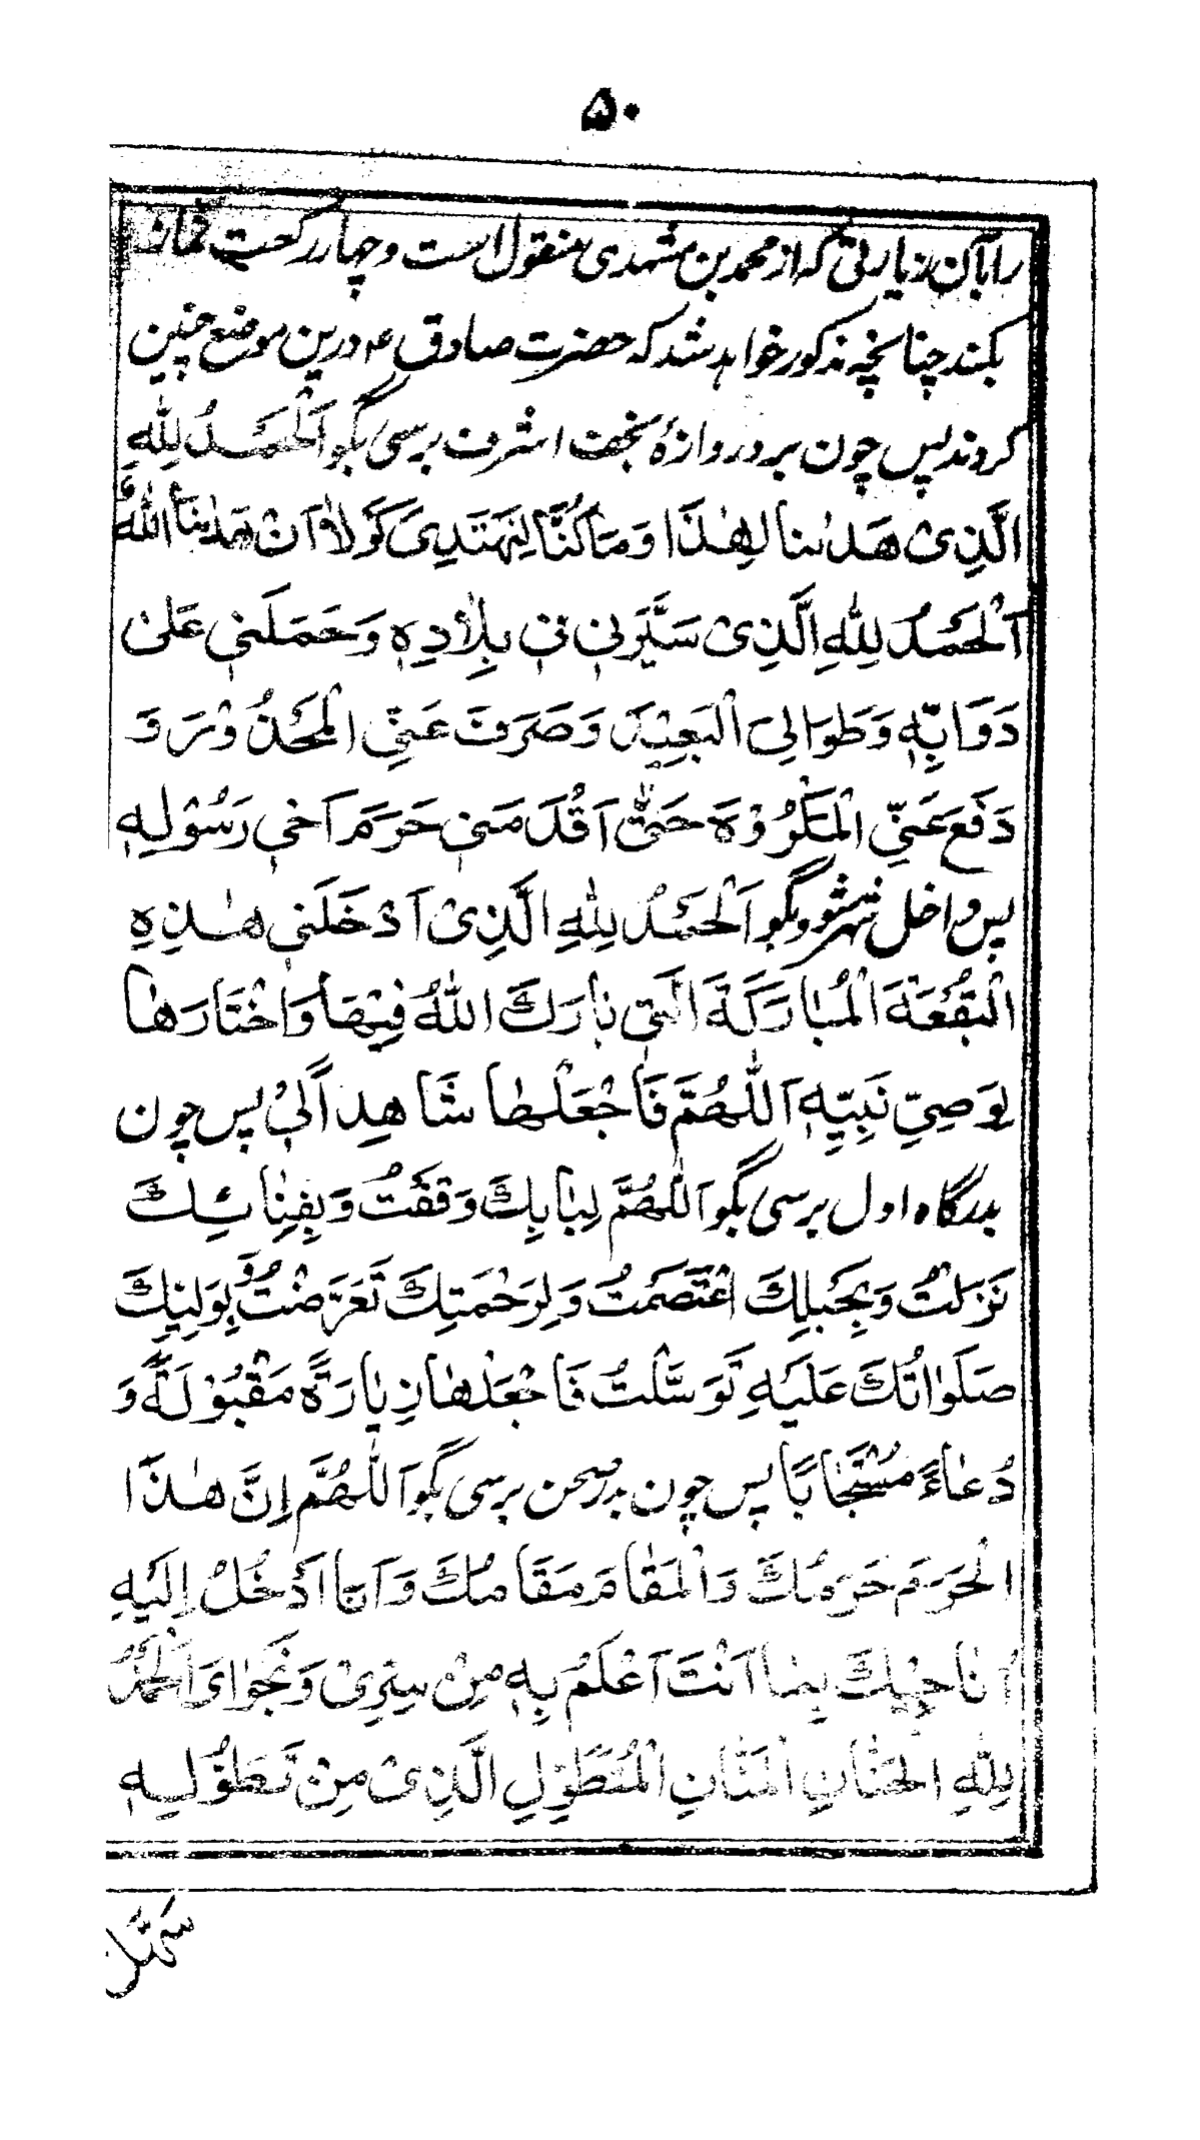 ۵۰
را بآن زیارتی که از محمد بن مشهدی منقول است و چهار رکعت نماز
بکند چنانچه مذکور خواهد شد که حضرت صادق ۴ درین موضع چنین
کردند پس چون بر دروازهٔ نجف اشرف برسی بگو اَلْحَمْدُ لِلّٰهِ
الَّذِیْ هَدٰىنا لِهٰذَا وَ مَا كُنَّا لِنَهْتَدِیَ لَوْلاٰ اَنْ هَدٰینَا اللّٰهُ
اَلْحَمْدُ لِلّٰهِ الَّذِیْ سَیَّرَنِیْ فِیْ بِلاٰدِهٖ وَ حَمَلَنِیْ عَلىٰ
دَوَابِّهٖ وَ طَوٰا لِیَ الْبَعِیْدَ وَ صَرَفَ عَنِّی الْمَحْذُوْرَ وَ
دَفَعَ عَنِّی الْمَكْرُوْهَ حَتّٰی اَقْدَمَنِیْ حَرَمَ اَخِیْ رَسُوْلِهٖ
پس داخل شهر شو و بگو اَلْحَمْدُ لِلّٰهِ الَّذِیْ اَدْخَلَنِیْ هٰذِهِ
الْبُقْعَةَ الْمُبٰارَكَةَ الَّتِیْ بٰارَكَ اللّٰهُ فِیْهٰا وَ اخْتَارَهٰا
لِوَصِیِّ نَبِیِّهٖ اَللّٰهُمَّ فَاجْعَلْهٰا شَاهِداً لِیْ پس چون
بدرگاه اول برسی بگو اَللّٰهُمَّ لِبٰابِكَ وَقَفْتُ وَ بِفِنٰائِكَ
نَزَلْتُ وَ بِحَبْلِكَ اعْتَصَمْتُ وَ لِرَحْمَتِكَ تَعَرَّضْتُ وَ بِوَلِیِّكَ
صَلَوٰاتُكَ عَلَیْهِ تَوَسَّلْتُ فَاجْعَلْهٰا زِیٰارَةً مَقْبُوْلَةً وَ
دُعٰاءً مُسْتَجٰابًا پس چون بدر صحن برسی بگو اَللّٰهُمَّ اِنَّ هٰذَا
الْحَرَمَ حَرَمُكَ وَ الْمَقٰامَ مَقَامُكَ وَ اَنَا اَدْخُلُ اِلَیْهِ
اُنٰاجِیْكَ بِمٰا اَنْتَ اَعْلَمُ بِهٖ مِنْ سِرِّیْ وَ نَجْوٰایَ اَلْحَمْدُ
لِلّٰهِ الْحَنّٰانِ الْمَنّٰانِ الْمُتَطَوِّلِ الَّذِیْ مِنْ تَطَوُّلِهٖ
سَهَّلَ